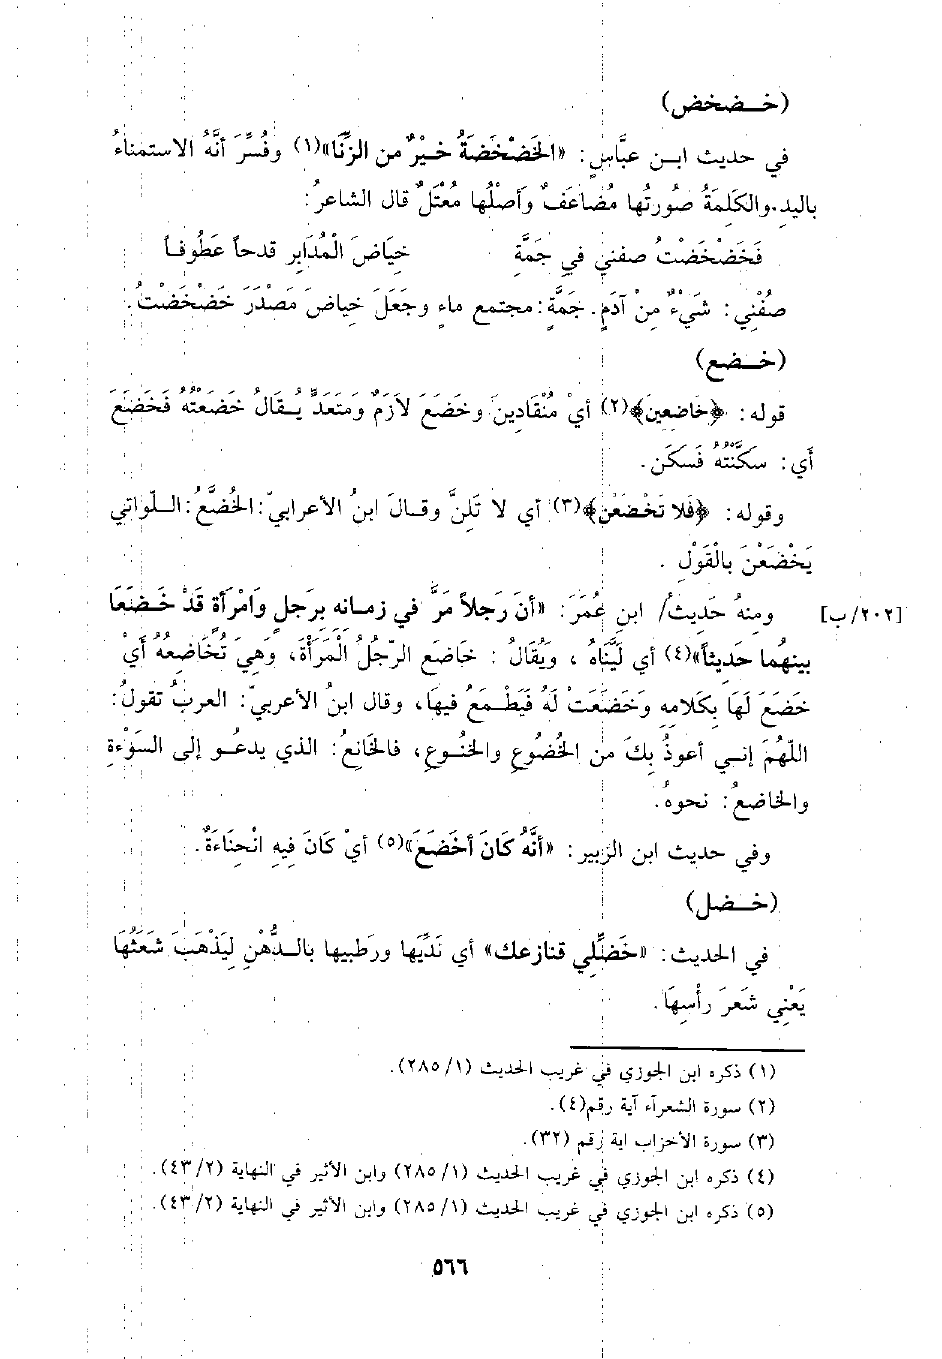 (خـضخض)
في حديث ابـن عبَّاسٍ: «الخَضْخَضَةُ خـيْرٌ من الزِّنَا»(١) وفُسِّرَ أنَّهُ الاستمناءُ
باليدِ.والكَلِمَةُ صورتُها مُضاعَفٌ وأصْلُها مُعْتَلٌ قال الشاعرُ:
فَخَضْخَضْتُ صفني في جَمَّةِ خِيَاضَ الْمُدَابِر قدحاً عَطُوفـاً
صُفْنِي: شَيْءٌ مِنْ آدَمٍ. جَمَّةٍ: مجتمع ماءٍ وجَعَلَ خياضَ مَصْدَرَ خَضْخَضْتُ.
(خـضع)
قوله: ﴿خاضعينَ﴾(٢) أيْ مُنْقَادِينَ وخَضَعَ لاَزَمٌ وَمتَعَدٍّ يـُقَالُ خَضَعْتُهُ فَخَضَعَ
أَي: سكَّنْتُهُ فَسكَن.
وقوله: ﴿فَلا تَخْضَعْن﴾(٣) أي لا تَلِنَّ وقـالَ ابنُ الأعرابيّ: الخُضَّعُ: الـلّواتي
يَخْضَعْنَ بالْقَوْلِ .
[٢٠٢/ب] ومنهُ حَدِيثُ/ ابنِ عُمَرَ: «أنَ رَجلاً مَرَّ في زمـانِهِ بِرَجلٍ وَامْرأَةٍ قَدْ خَـضَعَا
بينهُما حَديثاً»(٤) أي لَيَّنَاهُ ، ويَُقالُ : خاضَع الرّجُلُ الْمَرَأَةَ، وهي تُخَاضِعهُ أَيْ
خَضَعَ لَهَا بِكَلامِهِ وَخَضَعَتْ لَهُ فَيَطْـمَعُ فيهَا، وقال ابنُ الأعربيّ: العربُ تقولُ:
اللّهُمَ إنـي أعوذُ بِكَ من الخُضُوعِ والخنُـوعِ، فالخَانِعُ: الذي يدعُـو إلى السَوْءةِ
والخاضعُ: نحوهُ.
وفي حديث ابن الزبير: «أنَّهُ كَانَ أخَضَعَ»(٥) أيْ كَانَ فِيهِ انْحِنَاءَةٌ.
(خـضل)
في الحديث: «خَضِّلِي قنازعك» أي نَدِّيَها ورَطبيها بالـدُّهْنِ لِيَذْهَبَ شَعَثُهَا
يَعْنِي شعَرَ رأْسِهَا.
(١) ذكره ابن الجوزي في غريب الحديث (١/ ٢٨٥).
(٢) سورة الشعرآء آية رقم(٤).
(٣) سورة الأحزاب اية رقم (٣٢).
(٤) ذكره ابن الجوزي في غريب الحديث (١/ ٢٨٥) وابن الأثير في النهاية (٢/ ٤٣).
(٥) ذكره ابن الجوزي في غريب الحديث (١/ ٢٨٥) وابن الأثير في النهاية (٢/ ٤٣).
٥٦٦